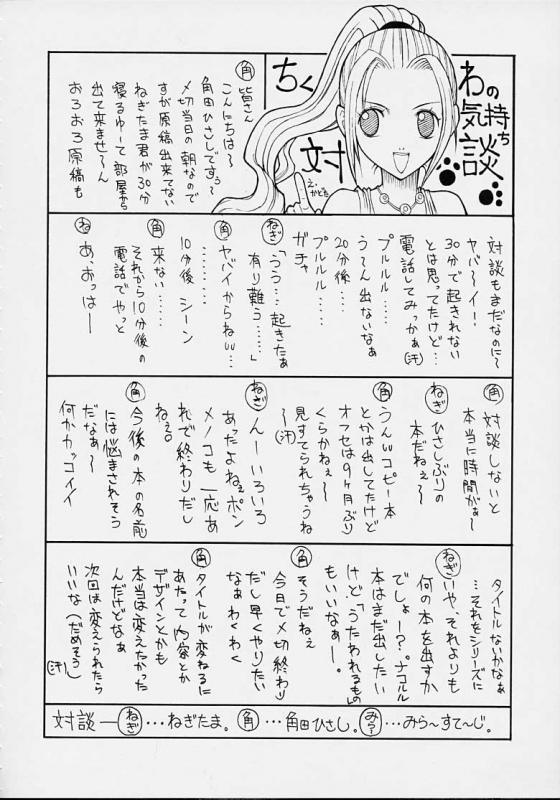 ちくわの気持ち
対談
え・かどた
角 皆さん
こんにちは〜
角田ひさしですぅ〜
〆切当日の朝なので
すが原稿出来てない
ねぎたま君が30分
寝るゆーて部屋から
出て来ませ〜ん
おろおろ原稿も
対談もまだなのに〜
ヤバ〜イー!
30分で起きれない
とは思ってたけど…
電話してみっかぁ(汗)
プルルル……
う〜ん出ないなぁ
20分後……
プルルル……
ガチャ
ねぎ「うう…起きたぁ
有り難う……」
角 ヤバイからねぃぃ…
………
10分後 シーン
角 来ない……
それから10分後の
電話でやっと
ね あ、おっはー
角 対談しないと
本当に時間がぁ〜
ねぎ ひさしぶりの
本だねぇ〜
角 うんぃぃコピー本
とかは出してたけど
オフセは9ヶ月ぶり
くらかねぇ〜
見すてられちゃうね
〜(汗)
ねぎ んーいろいろ
あったよねぇポン
メノコも一応あ
れで終わりだし
ねぇ。
角 今後の本の名前
には悩まされそう
だなぁ〜
何かカッコイイ
タイトルないかなぁ
…それをシリーズに
ねぎ いや、それよりも
何の本を出すか
でしょー?。ナコルル
本はまだ出したい
けど、「うたわれるもの」
もいいなぁー。
角 そうだねぇ
今日で〆切終わり
だし早くやりたい
なぁわくわく
角 タイトルが変わるに
あたって内容とか
デザインとかも
本当は変えたかった
んだけどなぁ
次回は変えられたら
いいな(だめそう)
(汗)
対談—ねぎ…ねぎたま。角…角田ひさし。みら…みら〜すて〜じ。